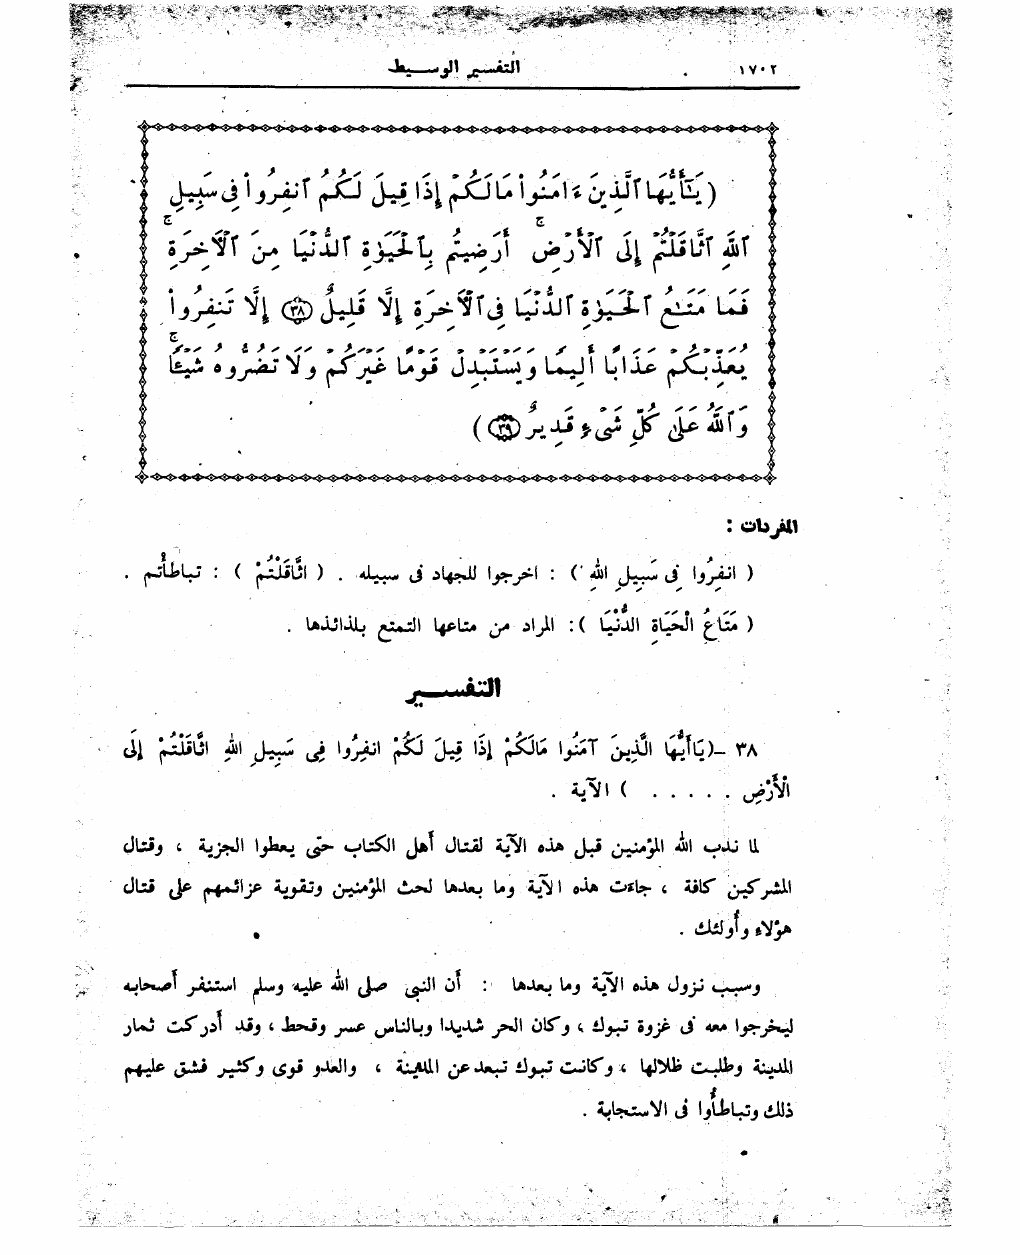 ١٧٠٢
التفسير الوسيط
(يَٰٓأَيُّهَا ٱلَّذِينَ ءَامَنُوا۟ مَا لَكُمْ إِذَا قِيلَ لَكُمُ ٱنفِرُوا۟ فِى سَبِيلِ
ٱللَّهِ ٱثَّاقَلْتُمْ إِلَى ٱلْأَرْضِ ۚ أَرَضِيتُم بِٱلْحَيَوٰةِ ٱلدُّنْيَا مِنَ ٱلْءَاخِرَةِ ۚ
فَمَا مَتَٰعُ ٱلْحَيَوٰةِ ٱلدُّنْيَا فِى ٱلْءَاخِرَةِ إِلَّا قَلِيلٌ ﴿٣٨﴾ إِلَّا تَنفِرُوا۟
يُعَذِّبْكُمْ عَذَابًا أَلِيمًا وَيَسْتَبْدِلْ قَوْمًا غَيْرَكُمْ وَلَا تَضُرُّوهُ شَيْـًٔا ۗ
وَٱللَّهُ عَلَىٰ كُلِّ شَىْءٍ قَدِيرٌ ﴿٣٩﴾ )
المفردات :
( انفِرُوا فِى سَبِيلِ اللهِ ) : اخرجوا للجهاد فى سبيله . ( اثَّاقَلْتُمْ ) : تباطأتم .
( مَتَاعُ الْحَيَاةِ الدُّنْيَا ): المراد من متاعها التمتع بلذائذها .
التفسير
٣٨ –(يَاأَيُّهَا الَّذِينَ آمَنُوا مَالَكُمْ إِذَا قِيلَ لَكُمْ انفِرُوا فِى سَبِيلِ اللهِ اثَّاقَلْتُمْ إِلَى
الْأَرْضِ . . . . . ) الآية .
لما ندب الله المؤمنين قبل هذه الآية لقتال أهل الكتاب حتى يعطوا الجزية ، وقتال
المشركين كافة ، جاءت هذه الآية وما بعدها لحث المؤمنين وتقوية عزائمهم على قتال
هؤلاء وأولئك .
وسبب نزول هذه الآية وما بعدها : أن النبى صلى الله عليه وسلم استنفر أصحابه
ليخرجوا معه فى غزوة تبوك ، وكان الحر شديدا وبالناس عسر وقحط ، وقد أدركت ثمار
المدينة وطلبت ظلالها ، وكانت تبوك تبعد عن المدينة ، والعدو قوى وكثير فشق عليهم
ذلك وتباطأوا فى الاستجابة .